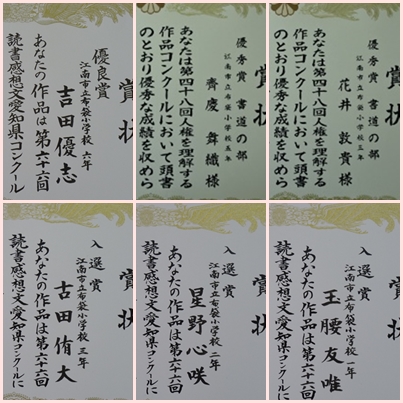 賞状
優良賞
江南市立布袋小学校 六年
吉田優志
あなたの作品は第六十六回
読書感想文愛知県コンクール
賞状
優秀賞 書道の部
江南市立布袋小学校五年
齊慶 舞織 様
あなたは第四十八回人権を理解する
作品コンクールにおいて頭書
のとおり優秀な成績を収めら
賞状
優秀賞 書道の部
江南市立布袋小学校三年
花井 敦貴 様
あなたは第四十八回人権を理解する
作品コンクールにおいて頭書
のとおり優秀な成績を収めら
賞状
入選賞
江南市立布袋小学校 三年
古田侑大
あなたの作品は第六十六回
読書感想文愛知県コンクールに
賞状
入選賞
江南市立布袋小学校 二年
星野心咲
あなたの作品は第六十六回
読書感想文愛知県コンクールに
賞状
入選賞
江南市立布袋小学校 一年
玉腰友唯
あなたの作品は第六十六回
読書感想文愛知県コンクールに